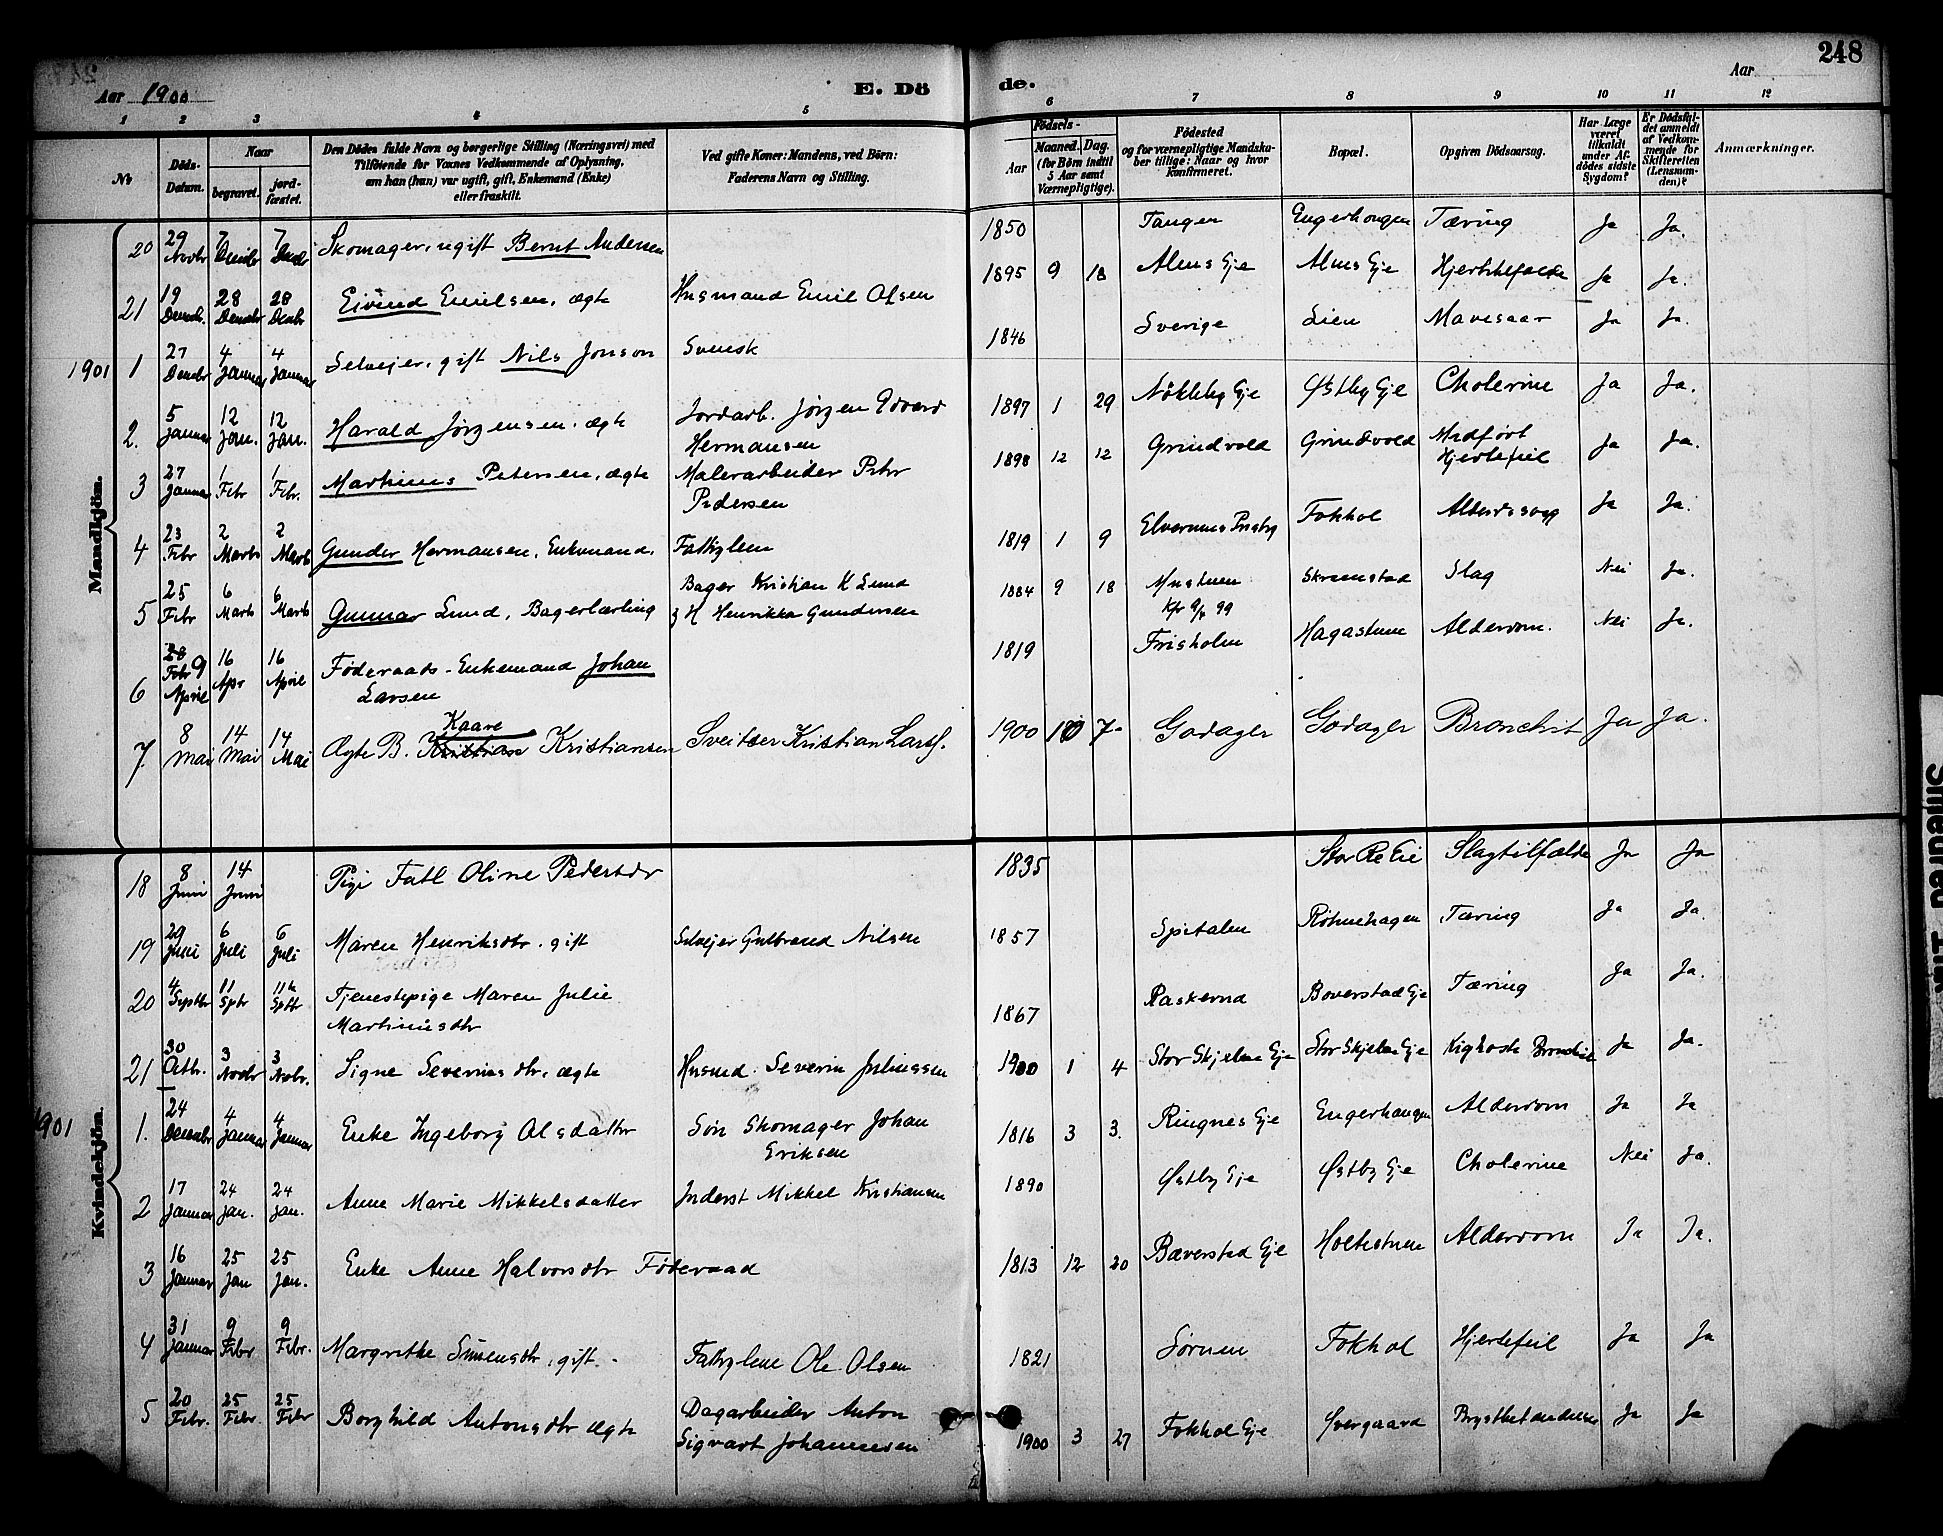 248
Aar 1900
E. Dö
de.
Aar
1 2 3 4 5 6 7 8 9 10 11 12
№
Döds-Datum.
Naar
begravet.
jord-fæstet.
Den Dödes fulde Navn og borgerlige Stilling (Næringsvei) med
Tilföiende for Voxnes Vedkommende af Oplysning,
om han (hun) var ugift, gift, Enkemand (Enke)
eller fraskilt.
Ved gifte Koner: Mandens, ved Børn:
Faderens Navn og Stilling.
Födsels-
Aar
Maaned. Dag.
(for Börn indtil
5 Aar samt
Værnepligtige).
Födested
og for værnepligtige Mandska-
ber tillige: Naar og hvor
konfirmeret.
Bopæl.
Opgiven Dödsaarsag.
Har Læge
været
tilkaldt
under Af-
dödes sidste
Sygdom?
Er Dödsfal-
det anmeldt
af Vedkom-
mende for
Skifteretten
(Lensman-
den)?
Anmærkninger.
Mandkjön.
20 29 Novbr 7 Decbr 7 Decbr Skomager, ugift Bernt Andersen 1850 Tangen Engerhougen Tæring Ja Ja.
21 19 Decbr. 28 Decbr 28 Decbr Eivind Emilsen, ægte Husmand Emil Olsen 1895 9 18 Alms Eje Alms Eje Ja Ja.
1901 1 27 Decbr 4 Januar 4 Januar Selvejer, gift Nils Jonson Svensk 1846 Sverige Lien Mavesaar Ja Ja.
2. 5 Januar 12 Jan. 12 Jan. Harald Jørgensen, ægte Jordarb. Jørgen Edvard Hermansen 1897 1 29 Nökleby Eje Østby Eje Cholerine Ja Ja.
3 27 Januar 1 Febr 1 Febr. Martinius Petersen, ægte Malerarbeider Petr Pedersen 1898 12 12 Grindvold Grindvold Medført Hjertefeil Ja Ja.
4 23 Febr 2 Marts 2 Marts Gunder Hermansen, Enkemand. Fattiglem 1819 1 9 Elverums Prestg Fokhol Alderdssvag Ja Ja.
5 25 Febr 6 Marts 6 Marts Gunnar Lund, Bagerlærling Bager Kristian K Lund
& H Henrikke Gundersen 1884 9 18 Mustuen Skremstad Slag Nei Ja.
6 28 Febr 9 April 16 Apr 16 April Föderaads-Enkemand Johan
Larsen 1819 Frisholm Hagastuen Alderdom. Nei Ja.
7. 8 Mai 14 Mai 14 Mai Ægte B. Kristian Kaare Kristiansen Sveitser Kristian Lars. 1900 10 7 Godager Godager Bronchit Ja Ja.
Kvindekjön.
18 8 Juni 14 Juni Pige Fatl Oline Pedersdr 1835 Stor Re Eie Slagtilfælde Ja Ja
19 29 Juni 6 Juli 6 Juli Maren Henriksdtr. gift Selvejer Gulbrand Nilsen 1857 Spitalen Röhnehagen Tæring Ja Ja.
20 4 Septbr 11 Sptr 11te Sptbr Tjenestepige Maren Julie
Martiniusdtr 1867 Raskerud Boverstad Eje Tæring Ja Ja.
21 30 Octbr. 3 Novbr 3 Novbr. Signe Severinsdtr, ægte Husmd. Severin Juliussen 1900 1 4 Stor Skjelve Eje Stor Skjelve Eje Kighoste Bronchit Ja Ja.
1901 1. 24 Decembr 4 Januar 4 Januar Enke Ingeborg Olsdatter Søn Skomager Johan
Eriksen 1816 3 3. Ringnes Eje Engerhaugen Alderdom Ja Ja
2 17 Januar 24 Jan. 24 Jan. Anne Marie Mikkelsdatter Inderst Mikkel Kristiansen 1890 Østby Eje Østby Eje Cholerine Nei Ja.
3 16 Januar 25 Jan 25 Jan. Enke Anne Halvorsdtr Föderaad 1813 12 20 Bæverstad Eje Holtestuen Alderdom Ja Ja.
4 31 Januar 9 Febr 9 Febr. Margrethe Simensdtr, gift. Fattiglem Ole Olsen 1821 Sørnen Fokhol Hjertefeil Ja Ja
5 20 Febr. 25 Febr. 25 Febr Borghild Antonsdtr ægte Dagarbeider Anton
Sigvart Johannesen 1900 3 27 Fokhol Eje Øvergaard Ja Ja